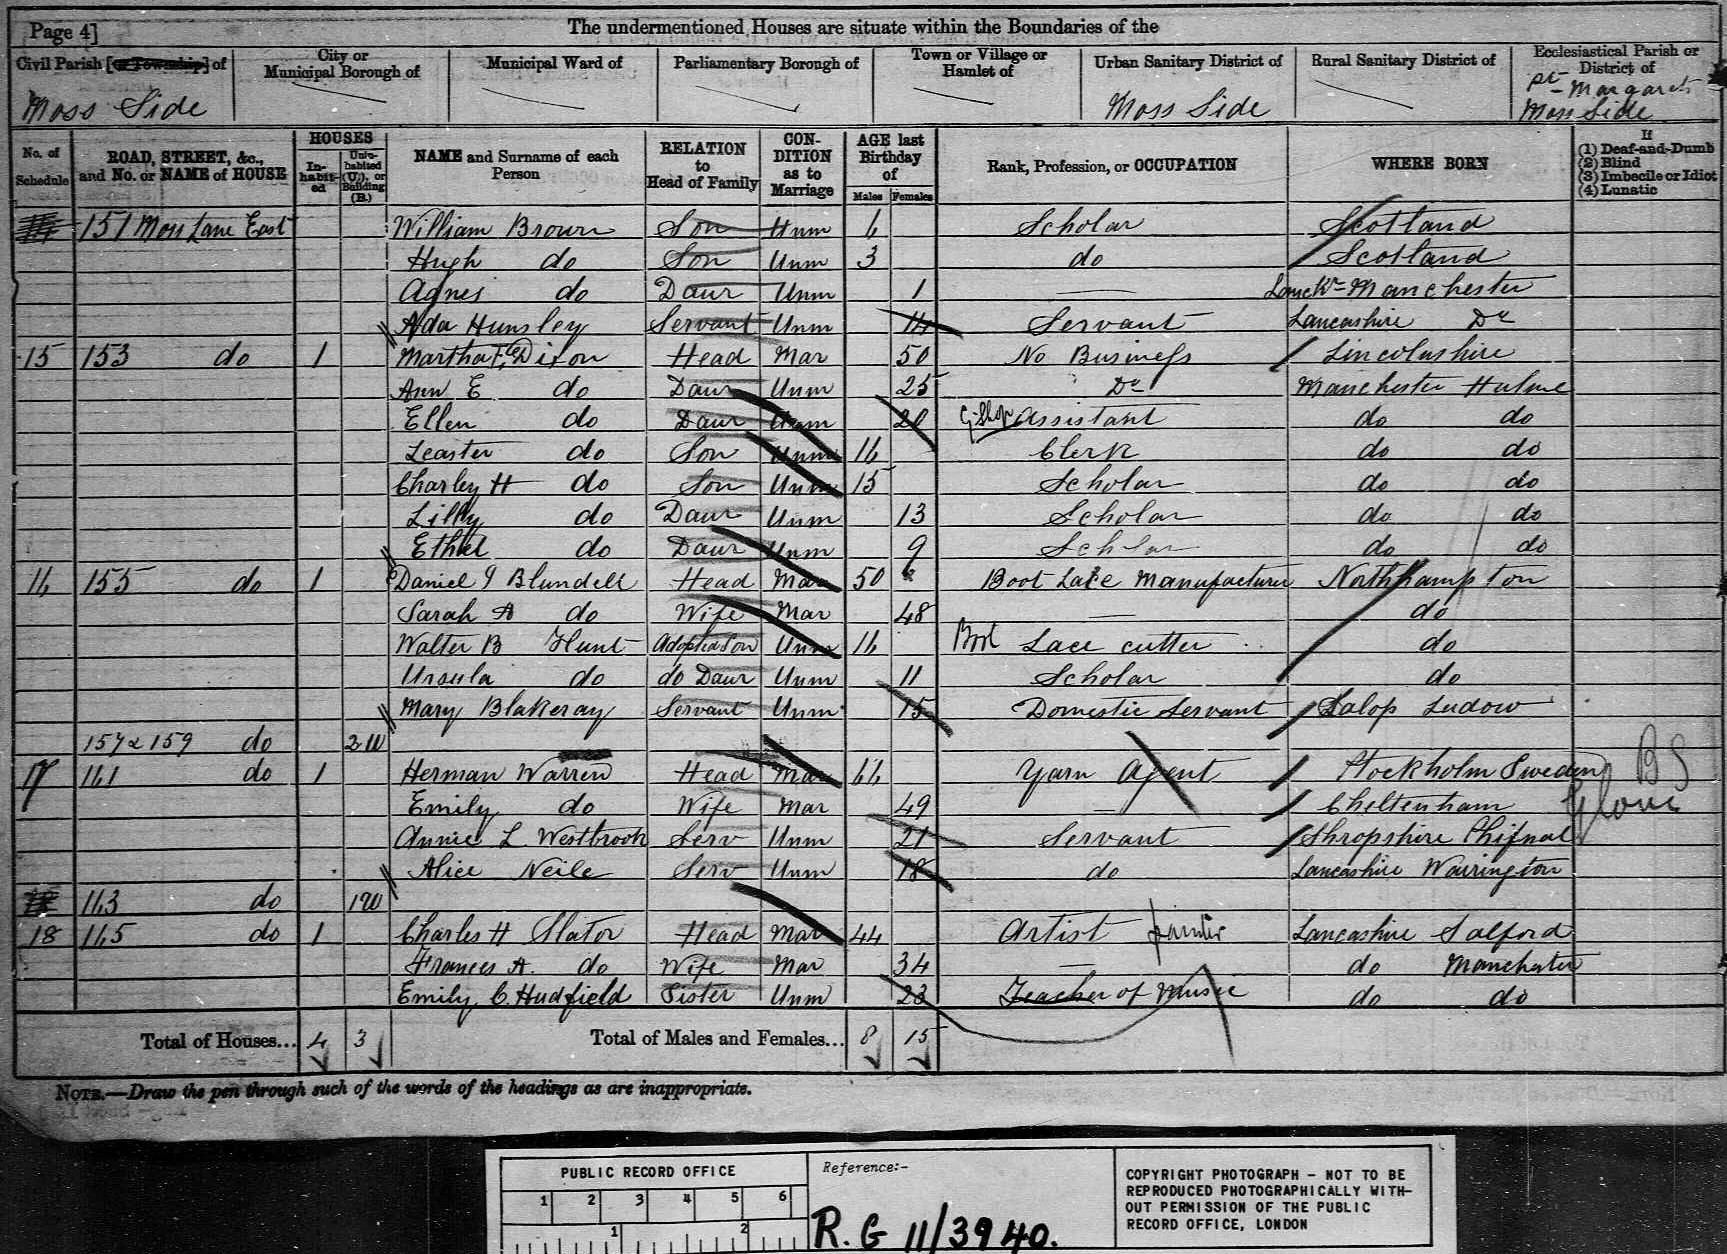 Page 4]
The undermentioned Houses are situate within the Boundaries of the
Civil Parish [or Township] of
City or Municipal Borough of
Municipal Ward of
Parliamentary Borough of
Town or Village or Hamlet of
Urban Sanitary District of
Rural Sanitary District of
Ecclesiastical Parish or District of
Moss Side
Moss Side
St Margarets Moss Side
No. of Schedule
ROAD, STREET, &c., and No. or NAME of HOUSE
HOUSES
In-habit-ed
Unin-habited (U.), or Building (B.)
NAME and Surname of each Person
RELATION to Head of Family
CON-DITION as to Marriage
AGE last Birthday of
Males Females
Rank, Profession, or OCCUPATION
WHERE BORN
If
(1) Deaf-and-Dumb
(2) Blind
(3) Imbecile or Idiot
(4) Lunatic
151 Moss Lane East William Brown Son Unm 6 Scholar Scotland
Hugh do Son Unm 3 do Scotland
Agnes do Daur Unm 1 Manchester
Ada Hunsley Servant Unm 14 Servant Lancashire Do
15 153 do 1 Martha Dixon Head Mar 50 No Business Lincolnshire
Ann E do Daur Unm 25 Do Manchester Hulme
Ellen do Daur Unm 20 Shop Assistant do do
Leaster do Son Unm 16 Clerk do do
Charley H do Son Unm 15 Scholar do do
Lilly do Daur Unm 13 Scholar do do
Ethel do Daur Unm 9 Scholar do do
16 155 do 1 Daniel J Blundell Head Mar 50 Boot Lace Manufacturer Northampton
Sarah A do Wife Mar 48 do
Walter B Hunt Adopted Son Unm 16 Boot Lace cutter do
Ursula do do Daur Unm 11 Scholar do
Mary Blakeray Servant Unm 15 Domestic Servant Salop Ludow
157 & 159 do 2 U
17 161 do 1 Herman Warren Head Mar 66 Yarn Agent Stockholm Sweden BS
Emily do Wife Mar 49 Cheltenham Glouc
Annie L Westbrook Serv Unm 21 Servant Shropshire Shifnal
Alice Neile Serv Unm 18 do Lancashire Warrington
163 do 1 U
18 165 do 1 Charles H Slator Head Mar 44 Artist painter Lancashire Salford
Frances A. do Wife Mar 34 do Manchester
Emily C. Hudfield Sister Unm 23 Teacher of Music do do
Total of Houses... 4 3 Total of Males and Females... 8 15
NOTE.—Draw the pen through such of the words of the headings as are inappropriate.
PUBLIC RECORD OFFICE
1 2 3 4 5 6
1 2
Reference:-
R.G 11/3940.
COPYRIGHT PHOTOGRAPH - NOT TO BE
REPRODUCED PHOTOGRAPHICALLY WITH-
OUT PERMISSION OF THE PUBLIC
RECORD OFFICE, LONDON